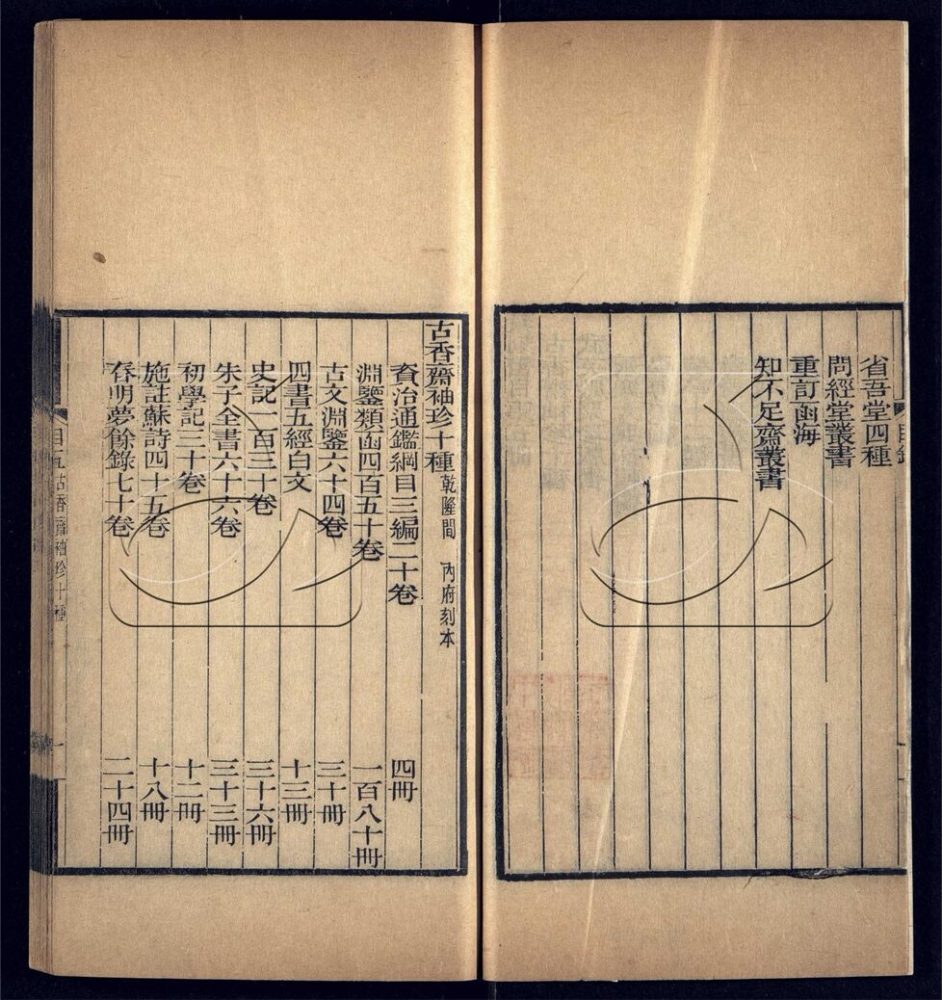 省吾堂四種
問經堂叢書
重訂函海
知不足齋叢書
古香齋袖珍十種 乾隆間 內府刻本
資治通鑑綱目三編二十卷 四冊
淵鑒類函四百五十卷 一百八十冊
古文淵鑒六十四卷 三十冊
四書五經白文 十三冊
史記一百三十卷 三十六冊
朱子全書六十六卷 三十三冊
初學記三十卷 十二冊
施註蘇詩四十五卷 十八冊
春明夢餘錄七十卷 二十四冊
古香齋袖珍十種